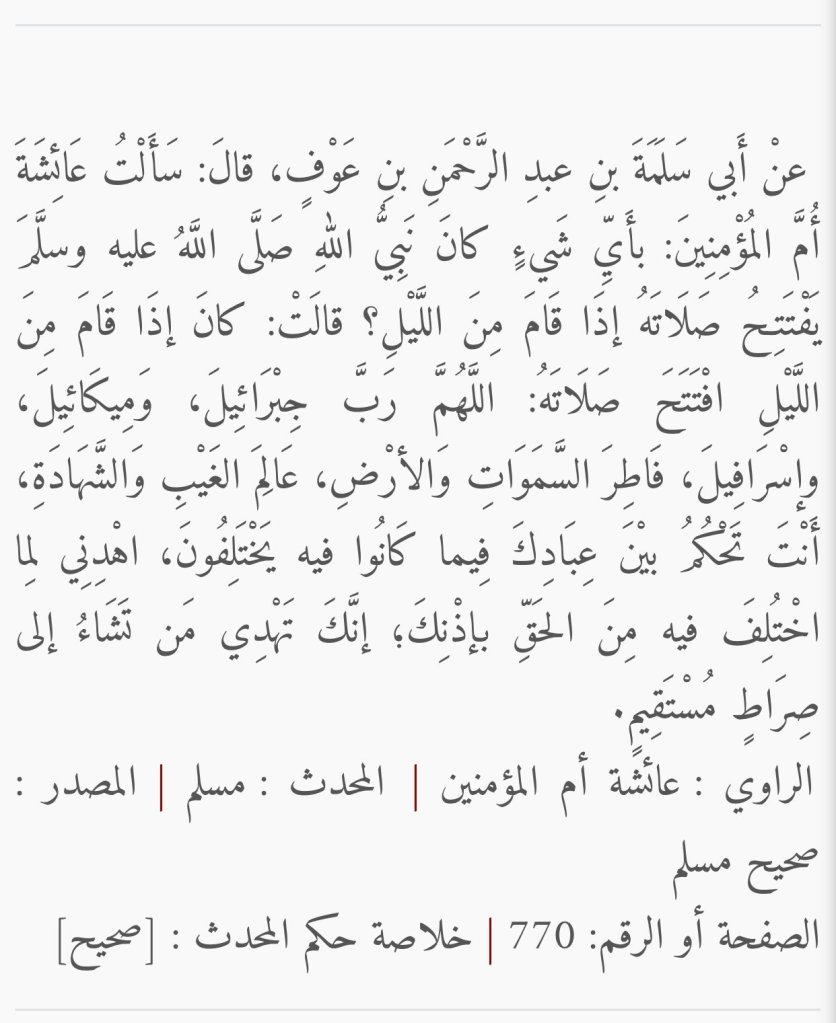 عنْ أَبِي سَلَمَةَ بنِ عبدِ الرَّحْمَنِ بنِ عَوْفٍ، قالَ: سَأَلْتُ عَائِشَةَ
أُمَّ المُؤْمِنِينَ: بأَيِّ شَيءٍ كانَ نَبِيُّ اللهِ صَلَّى اللَّهُ عليه وسلَّمَ
يَفْتَتِحُ صَلَاتَهُ إذَا قَامَ مِنَ اللَّيْلِ؟ قالَتْ: كانَ إذَا قَامَ مِنَ
اللَّيْلِ افْتَتَحَ صَلَاتَهُ: اللَّهُمَّ رَبَّ جِبْرَائِيلَ، وَمِيكَائِيلَ،
وإسْرَافِيلَ، فَاطِرَ السَّمَوَاتِ وَالأرْضِ، عَالِمَ الغَيْبِ وَالشَّهَادَةِ،
أَنْتَ تَحْكُمُ بيْنَ عِبَادِكَ فِيما كَانُوا فيه يَخْتَلِفُونَ، اهْدِنِي لِما
اخْتُلِفَ فيه مِنَ الحَقِّ بإذْنِكَ؛ إنَّكَ تَهْدِي مَن تَشَاءُ إلى
صِرَاطٍ مُسْتَقِيمٍ.
الراوي : عائشة أم المؤمنين | المحدث : مسلم | المصدر :
صحيح مسلم
الصفحة أو الرقم: 770 | خلاصة حكم المحدث : [صحيح]